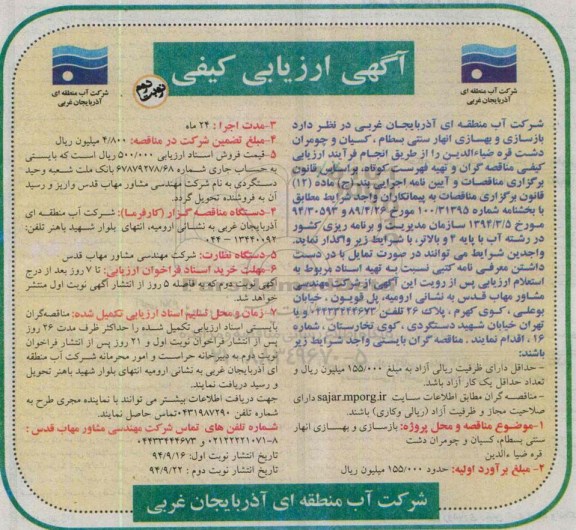 آگهی ارزیابی کیفی
نوبت دوم
شرکت آب منطقه ای
آذربایجان غربی
شرکت آب منطقه ای
آذربایجان غربی
شرکت آب منطقه ای آذربایجان غربی در نظر دارد
بازسازی و بهسازی انهار سنتی بسطام ، کسیان و چومران
دشت قره ضیاءالدین را از طریق انجام فرآیند ارزیابی
کیفی مناقصه گران و تهیه فهرست کوتاه، براساس قانون
برگزاری مناقصات و آیین نامه اجرایی بند (ج) ماده (۱۲)
قانون برگزاری مناقصات به پیمانکاران واجد شرایط مطابق
با بخشنامه شماره ۱۰۰/۳۱۳۹۵ مورخ ۸۹/۳/۲۶ و ۹۴/۳۰۵۹۳
مورخ ۱۳۹۴/۳/۵ سازمان مدیریت و برنامه ریزی کشور
در رشته آب با پایه ۳ و بالاتر، با شرایط زیر واگذار نماید.
واجدین شرایط می توانند در صورت تمایل با در دست
داشتن معرفی نامه کتبی نسبت به تهیه اسناد مربوط به
استعلام ارزیابی پس از رویت این آگهی از شرکت مهندسی
مشاور مهاب قدس به نشانی ارومیه، پل قویون ، خیابان
بوعلی ، کوی کهرم ، پلاک ۲۶ تلفن: ۰۴۴۳۳۴۴۴۶۷۳ و یا
تهران خیابان شهید دستگردی ، کوی تخارستان ، شماره
۱۶ ، اقدام نمایند . مناقصه گران بایستی واجد شرایط زیر
باشند:
- حداقل دارای ظرفیت ریالی آزاد به مبلغ ۱۵۵/۰۰۰ میلیون ریال و
تعداد حداقل یک کار آزاد باشد.
- مناقصه گران مطابق اطلاعات سایت sajar.mporg.ir دارای
صلاحیت مجاز و ظرفیت آزاد (ریالی وکاری) باشند.
۱-موضوع مناقصه و محل پروژه: بازسازی و بهسازی انهار
سنتی بسطام، کسیان و چومران دشت
قره ضیاءالدین
۲- مبلغ برآورد اولیه: حدود ۱۵۵/۰۰۰ میلیون ریال
۳-مدت اجرا : ۲۴ ماه
۴-مبلغ تضمین شرکت در مناقصه: ۴/۸۰۰ میلیون ریال
۵-قیمت فروش اسناد ارزیابی ۵۰۰/۰۰۰ ریال است که بایستی
به حساب جاری شماره ۶۷۸۷۹۲۷۸/۶۸ بانک ملت شعبه وحید
دستگردی به نام شرکت مهندسی مشاور مهاب قدس واریز و رسید
آن به فروشنده تحویل گردد.
۴-دستگاه مناقصه گزار (کارفرما): شرکت آب منطقه ای
آذربایجان غربی به نشانی ارومیه، انتهای بلوار شهید باهنر تلفن:
۰۴۴-۱۳۴۴۰۰۹۲
۵-دستگاه نظارت: شرکت مهندسی مشاور مهاب قدس
۶-مهلت خرید اسناد فراخوان ارزیابی: تا ۷ روز بعد از درج
آگهی نوبت دوم که به فاصله ۵ روز از انتشار آگهی نوبت اول منتشر
خواهد شد.
۷- زمان و محل تسلیم اسناد ارزیابی تکمیل شده: مناقصه‌گران
بایستی اسناد ارزیابی تکمیل شده را حداکثر ظرف مدت ۲۶ روز
پس از انتشار فراخوان نوبت اول و ۲۱ روز پس از انتشار فراخوان
نوبت دوم به دبیرخانه حراست و امور محرمانه شرکت آب منطقه
ای آذربایجان غربی به نشانی ارومیه انتهای بلوار شهید باهنر تحویل
و رسید دریافت نمایند.
جهت دریافت اطلاعات بیشتر می توانند با نماینده مجری طرح به
شماره تلفن ۰۴۳۱۹۸۷۲۹۰ تماس حاصل نمایند.
شماره تلفن های تماس شرکت مهندسی مشاور مهاب قدس :
۰۲۱۲۲۲۲۱۰۷۱-۸ و ۰۴۴۳۳۴۴۴۶۷۳
تاریخ انتشار نوبت اول: ۹۴/۹/۱۶
تاریخ انتشار نوبت دوم : ۹۴/۹/۲۲
شرکت آب منطقه ای آذربایجان غربی